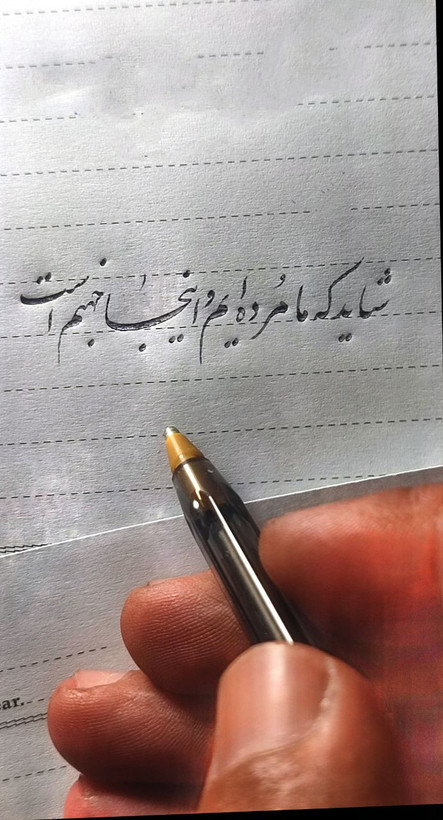 شاید که ما مُرده ایم و اینجا جهنم است
ar.